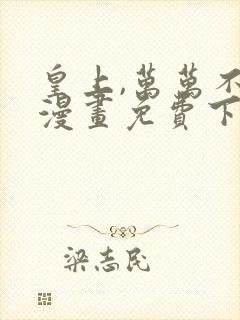 皇上,萬萬不
漫畫免費下
梁志民